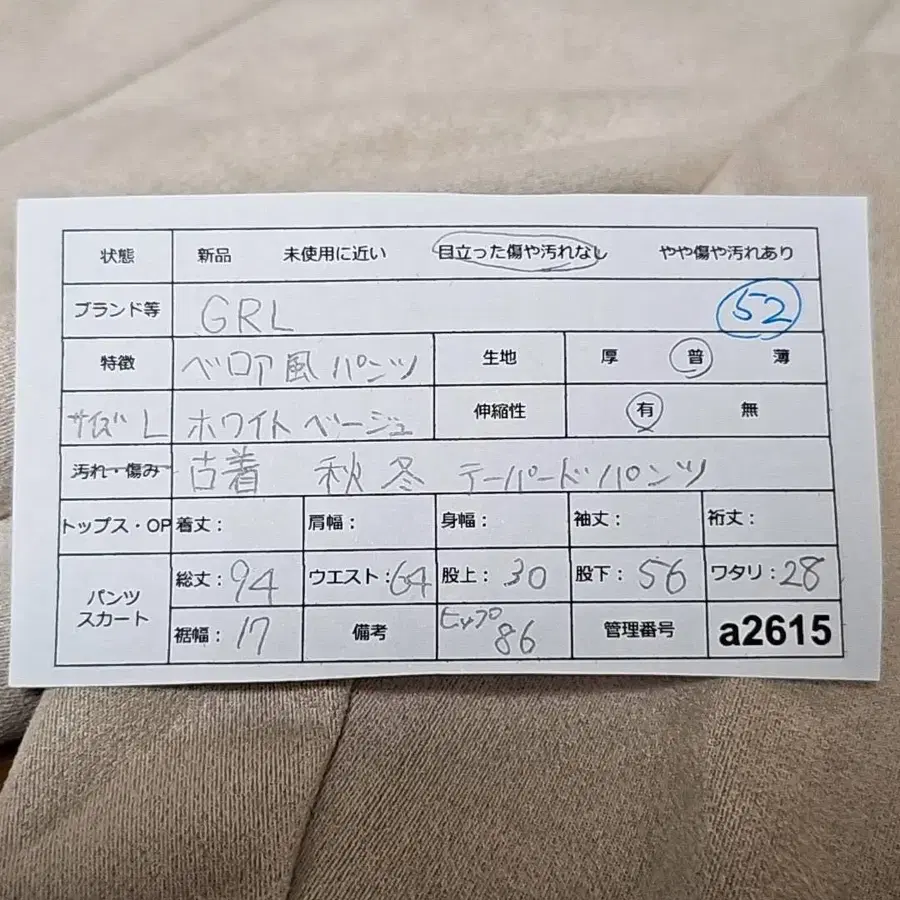 状態 新品 未使用に近い 目立った傷や汚れなし やや傷や汚れあり
ブランド等 GRL 52
特徴 ベロア風パンツ 生地 厚 普 薄
サイズ L ホワイトベージュ 伸縮性 有 無
汚れ・傷み 古着 秋冬 テーパードパンツ
トップス・OP 着丈: 肩幅: 身幅: 袖丈: 裄丈:
パンツ スカート 総丈:94 ウエスト:64 股上:30 股下:56 ワタリ:28
裾幅:17 備考 ヒップ 86 管理番号 a2615